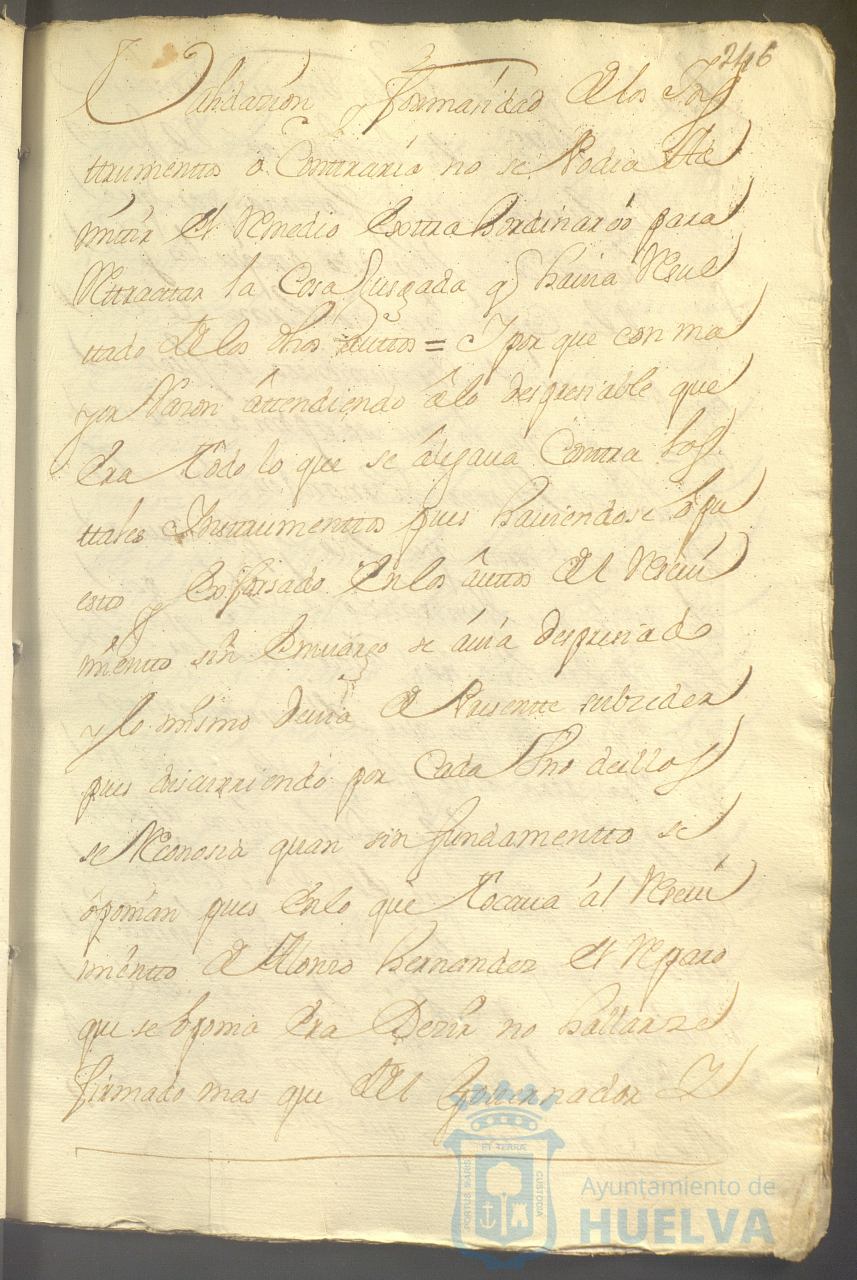 246
Validazion y formalidad de los Ins
trumentos o Contrario no se Podia Ad
mitir el Remedio Exttra hordinario para
Rettracttar la Cosa Jusgada q havia Resul
tado de los dhos auttos = I por que con ma
yor Razon attendiendo a lo despresiable que
Era ttodo lo que se alegava Conttra los
ttales Instrumenttos pues haviendose opu
esto y Esforsado En los auttos del Reciui
mientto sin Emvargo se avia despresiado
y lo mismo devia de Presentte subzeder
pues discurriendo por Cada Vno dellos
se Reconosia quan sin fundamentto se
oponian pues En lo que ttocava al Reciui
mientto de Alonso Hernandez el Reparo
que se oponia Era Dezir no hallarze
firmado mas que del Governador I
PORTUS MARIS
ET TERRAE
CUSTODIA
Ayuntamiento de
HUELVA